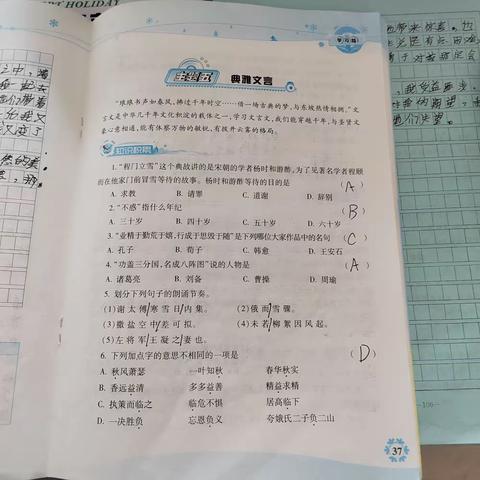 ORT HOLIDAY
学习篇
主题五 典雅文言
“琅琅书声如春风,拂过千年时空……借一场古典的梦,与东坡热情相拥。”文
言文是中华几千年文化积淀的载体之一,学习文言文,我们能穿越千年,与圣贤文
豪心意相通,能有体察万物的敏锐,有拨开云雾的格局。
知识积累
1.“程门立雪”这个典故讲的是宋朝的学者杨时和游酢,为了见著名学者程颐
而在他家门前冒雪等待的故事。杨时和游酢等待的目的是 (A)
A. 求教 B. 请罪 C. 道谢 D. 辞别
2.“不惑”指什么年纪 (B)
A. 三十岁 B. 四十岁 C. 五十岁 D. 六十岁
3.“业精于勤荒于嬉,行成于思毁于随”是下列哪位大家作品中的名句 (C)
A. 孔子 B. 荀子 C. 韩愈 D. 王安石
4.“功盖三分国,名成八阵图”说的人物是 (A)
A. 诸葛亮 B. 刘备 C. 曹操 D. 周瑜
5. 划分下列句子的朗诵节奏。
(1)谢太傅/寒雪日/内集。 (2)俄而/雪骤。
(3)撒盐空中/差可拟。 (4)未若/柳絮因风起。
(5)左将军/王凝之/妻也。
6. 下列加点字的意思不相同的一项是 (D)
A. 秋风萧瑟 一叶知秋 春华秋实
B. 香远益清 多多益善 精益求精
C. 执策而临之 临危不惧 居高临下
D. 一决胜负 忘恩负义 夸娥氏二子负二山
37
-100-